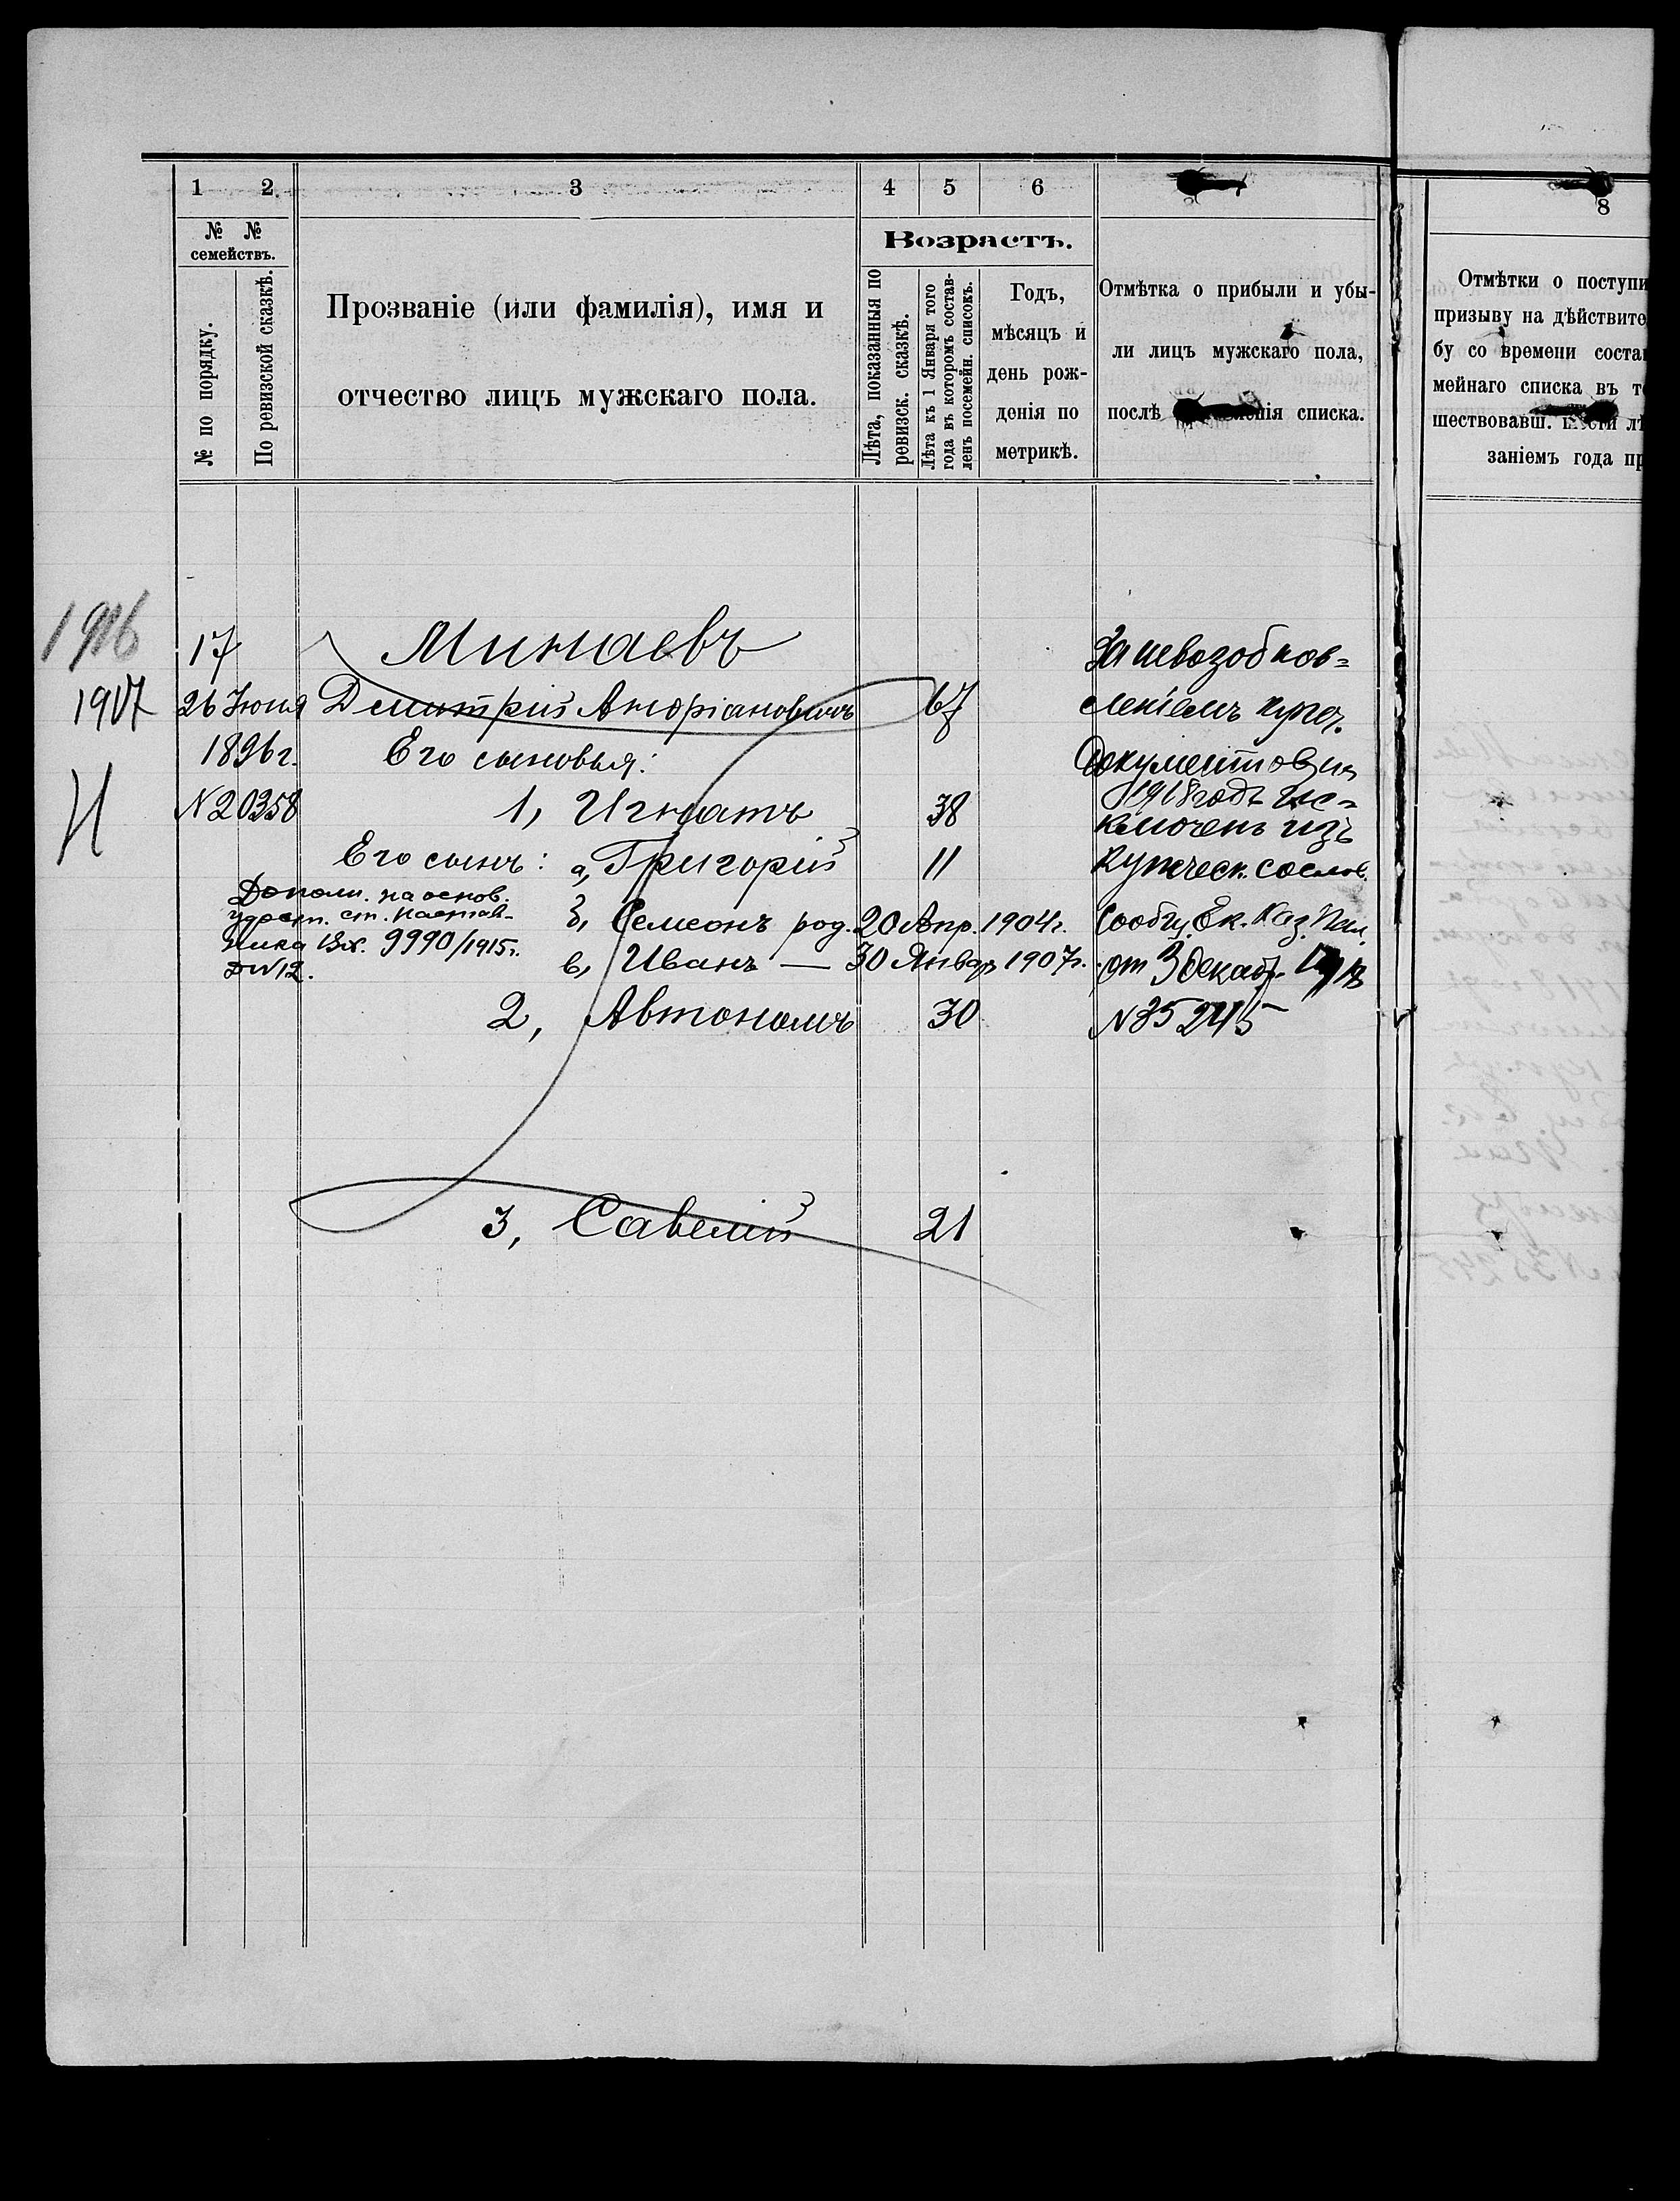 1 2 3 4 5 6
8
№ № семействъ.
№ по порядку.
По ревизской сказкѣ.
Прозваніе (или фамилія), имя и
отчество лицъ мужскаго пола.
Возрастъ.
Лѣта, показанныя по
ревизск. сказкѣ.
Лѣта къ 1 Января того
года въ которомъ состав-
ленъ посемейн. списокъ.
Годъ,
мѣсяцъ и
день рож-
денія по
метрикѣ.
Отмѣтка о прибыли и убы-
ли лицъ мужскаго пола,
послѣ списка.
Отмѣтки о поступи
призыву на дѣйствите
бу со времени соста
мейнаго списка въ т
шествовавш. лѣ
заніемъ года пр
1916
1917
И
17 Минаевъ
26 Іюня Дмитрій Андріановичъ 67
1896 г. Его сыновья:
№20358 1, Игнатъ 38
Его сынъ: а, Григорій 11
б, Семеонъ род. 20 Апр. 1904 г.
в, Иванъ — 30 Январ 1907 г.
Дополн. на основ.
удост. ст. настав-
ника Вх. 9990/1915 г.
D№12.
2, Автономъ 30
3, Савелій 21
За невозобнов=
леніемъ купеч.
документовъ на
1918 годъ ис=
ключенъ изъ
купеческ. сослов.
Сообщ. Ек. Каз. Пал.
от 3 декабр. 1917
№35245